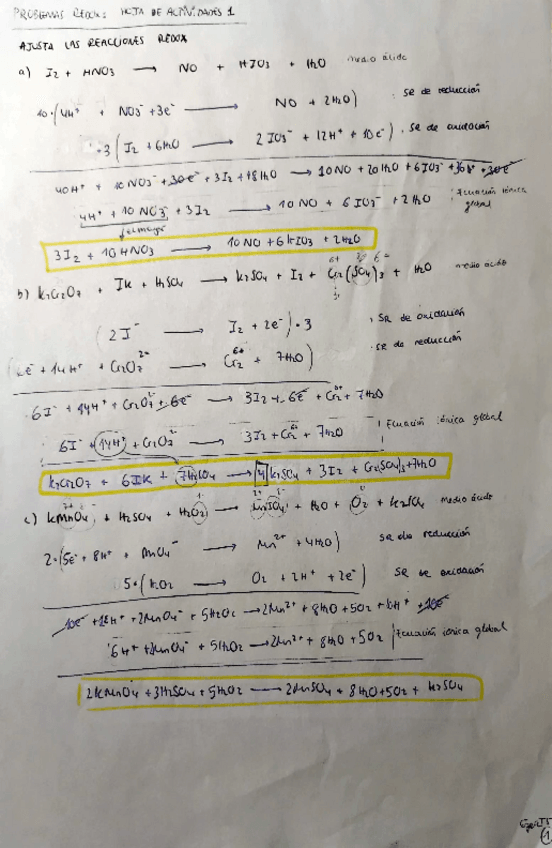 PROBLEMAS REDOX: HOJA DE ACTIVIDADES 1
AJUSTA LAS REACCIONES REDOX
a) I2 + HNO3 → NO + HIO3 + H2O medio ácido
10·(4H+ + NO3- + 3e- → NO + 2H2O) · SR de reducción
·3(I2 + 6H2O → 2IO3- + 12H+ + 10e-) · SR de oxidación
40H+ + 10NO3- + 30e- + 3I2 + 18H2O → 10NO + 20H2O + 6IO3- + 36H+ + 30e-
4H+ + 10NO3- + 3I2 → 10NO + 6IO3- + 2H2O Ecuación iónica global
3I2 + 10HNO3 → 10NO + 6HIO3 + 2H2O
b) K2Cr2O7 + IK + H2SO4 → K2SO4 + I2 + Cr2(SO4)3 + H2O medio ácido
(2I- → I2 + 2e-)·3 · SR de oxidación
e- + 14H+ + Cr2O7 2- → Cr2 6+ + 7H2O) · SR de reducción
6I- + 14H+ + Cr2O7 2- + 6e- → 3I2 + 6e- + Cr2 6+ + 7H2O
6I- + 14H+ + Cr2O7 2- → 3I2 + Cr2 6+ + 7H2O Ecuación iónica global
K2Cr2O7 + 6IK + 7H2SO4 → 4K2SO4 + 3I2 + Cr2(SO4)3 + 7H2O
c) KMnO4 + H2SO4 + H2O2 → MnSO4 + H2O + O2 + K2SO4 medio ácido
2·(5e- + 8H+ + MnO4- → Mn2+ + 4H2O) SR de reducción
5·(H2O2 → O2 + 2H+ + 2e-) SR de oxidación
10e- + 16H+ + 2MnO4- + 5H2O2 → 2Mn2+ + 8H2O + 5O2 + 10H+ + 10e-
6H+ + 2MnO4- + 5H2O2 → 2Mn2+ + 8H2O + 5O2 Ecuación iónica global
2KMnO4 + 3H2SO4 + 5H2O2 → 2MnSO4 + 8H2O + 5O2 + K2SO4
1